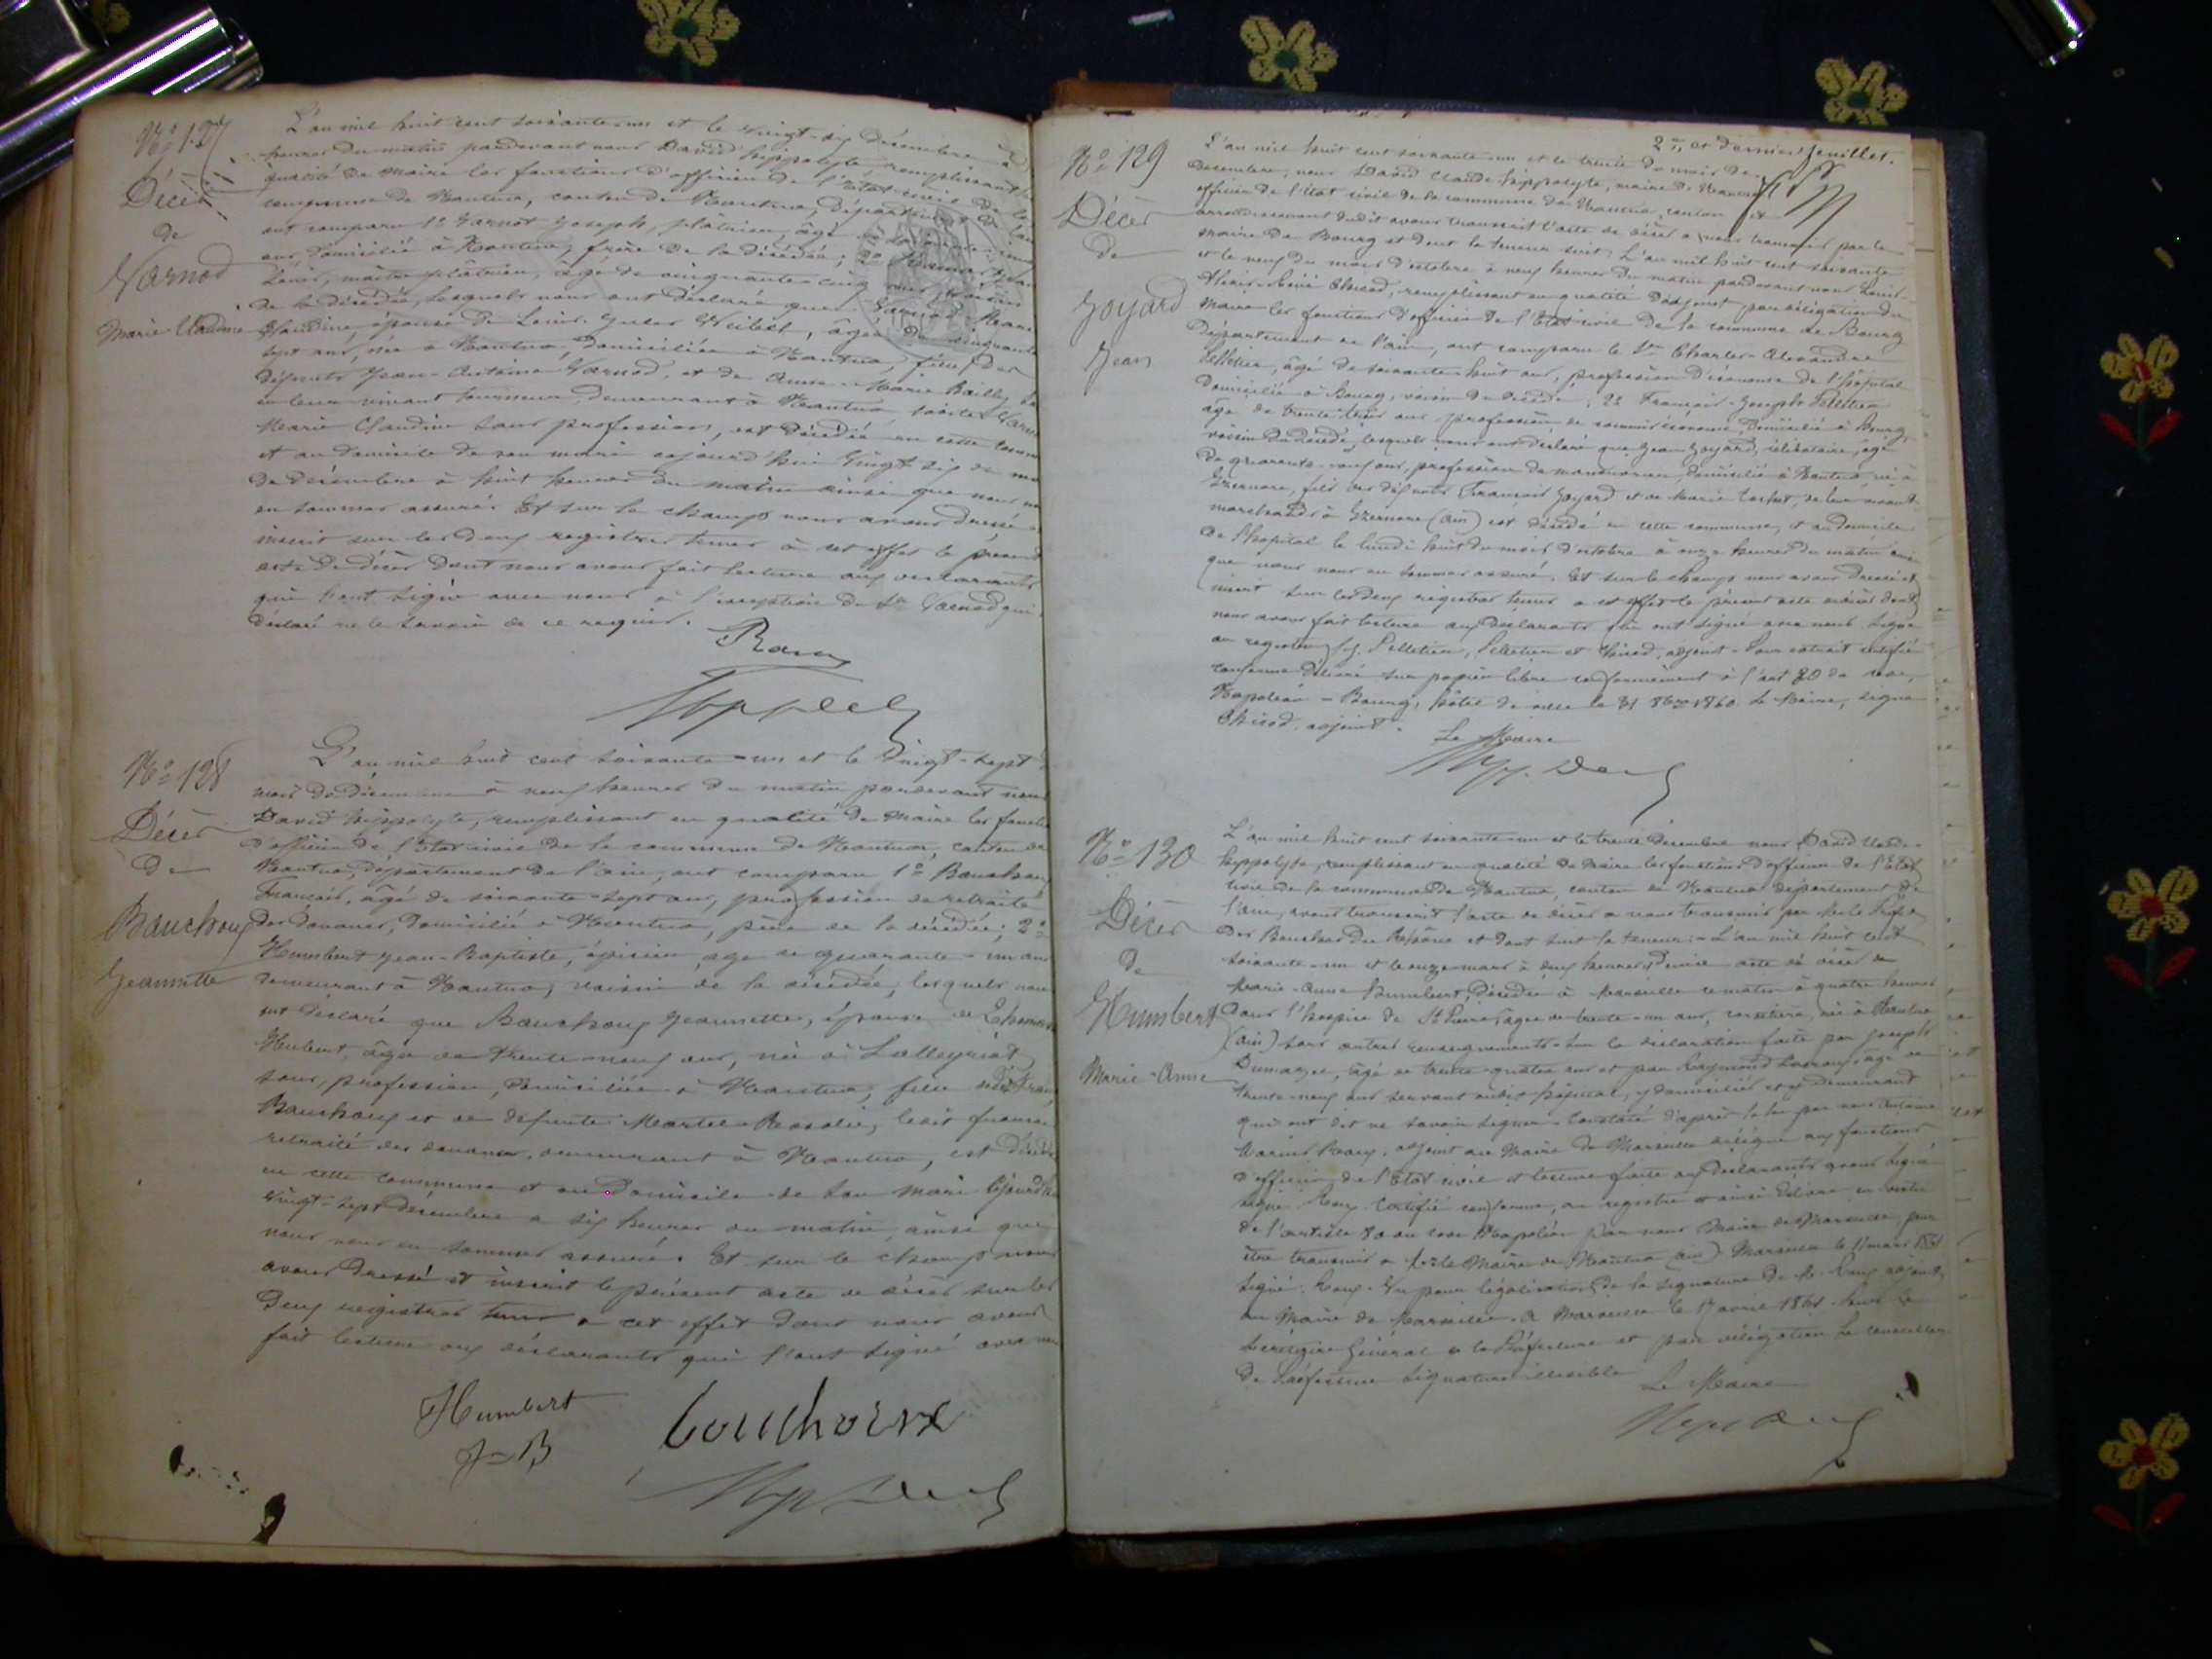 N° 127
Décès
de
Varnod
Marie Claudine
L'an mil huit cent soixante-un et le vingt-six Décembre à
heures du matin pardevant nous David hippolyte, remplissant en
qualité de Maire les fonctions d'officier de l'Etat civil de la
commune de Nantua, canton de Nantua, Département de l'ain
ont comparu 1° Varnot Joseph, plâtrier, âgé de
ans, domicilié à Nantua, frère de la décédée; 2°
Louis, maître plâtrier, âgé de cinquante-cinq ans, voisin
de la décédée, lesquels nous ont déclaré que Varnod Marie
Claudine, épouse de Louis, âgée de cinquante
sept ans, née à Nantua, domiciliée à Nantua, fille des
défunts Jean-Antoine Varnod, et de Anne-Marie Bailly
en leur vivant demeurant à Nantua, ladite Varnod
Marie Claudine sans profession, est décédée en cette commune
et au domicile de son mari aujourd'hui vingt six du mois
de décembre à huit heures du matin ainsi que nous nous
en sommes assuré. Et sur le champ nous avons dressé et
inscrit sur les deux registres tenus à cet effet le présent
acte de décès dont nous avons fait lecture aux déclarants
qui l'ont signé avec nous à l'exception du Sr Varnod qui a
déclaré ne le savoir de ce requis.
N° 128
Décès
de
Bauchoux
Jeannette
L'an mil huit cent soixante-un et le vingt-sept
mois de décembre à neuf heures du matin pardevant nous
David hippolyte, remplissant en qualité de Maire les fonctions
d'officier de l'Etat civil de la commune de Nantua, canton de
Nantua, département de l'ain, ont comparu 1° Bauchoux
François, âgé de soixante-sept ans, profession de retraité
des Douanes, domicilié à Nantua, père de la décédée; 2°
Humbert Jean-Baptiste, épicier, âgé de quarante-un ans
demeurant à Nantua, voisin de la décédée, lesquels nous
ont déclaré que Bauchoux Jeannette, épouse de
Hubert, âgée de trente-neuf ans, née à Lalleyriat
sans profession, domiciliée à Nantua, fille de
Bauchoux et de défunte Rosalie, ledit
retraité des douanes, demeurant à Nantua, est décédée
en cette commune et au Domicile de son mari
vingt-sept décembre à six heures du matin, ainsi que
nous nous en sommes assuré. Et sur le champ nous
avons dressé et inscrit le présent acte de décès sur les
deux registres tenus à cet effet dont nous avons
fait lecture aux déclarants qui l'ont signé avec nous
Humbert
J-B
bouchoux
2me et dernier feuillet.
N° 129
Décès
de
Goyard
Jean
L'an mil huit cent soixante-un et le trente du mois de
décembre, nous David Claude hippolyte, maire de Nantua
officier de l'état civil de la commune de Nantua, canton et
arrondissement dudit avons transcrit l'acte de décès à nous transmis par le
Maire de Bourg et dont la teneur suit: L'an mil huit cent soixante
et le neuf du mois d'octobre à neuf heures du matin pardevant nous Louis
remplissant en qualité d'adjoint par délégation du
Maire les fonctions d'officier de l'Etat civil de la commune de Bourg
Département de l'ain, ont comparu le Sr Charles-Alexandre
Pelletier, âgé de soixante-huit ans, profession d'économe de l'hôpital
domicilié à Bourg, voisin du décédé; 2° François-Joseph Pelletier
âgé de trente-trois ans profession de commissionnaire, domicilié à Bourg,
voisin du décédé, lesquels nous ont déclaré que Jean Goyard, célibataire, âgé
de quarante-neuf ans, profession de manouvrier, domicilié à Nantua, né à
Izernore, fils des défunts François Goyard et de Marie de leur vivant
marchands à Izernore (ain) est décédé en cette commune, et au domicile
de l'hôpital le lundi huit du mois d'octobre à onze heures du matin ainsi
que nous nous en sommes assuré. Et sur le champ nous avons dressé et
inscrit sur les deux registres tenus à cet effet le présent acte de décès dont
nous avons fait lecture aux déclarants qui ont signé avec nous. Signé
au registre Pelletier, Pelletier et adjoint. Pour extrait certifié
conforme délivré sur papier libre conformément à l'art 80 du code
Napoléon - Bourg, hôtel de ville le 31 8bre 1860. Le Maire, signé
adjoint.
Le Maire
N° 130
Décès
de
Humbert
Marie-Anne
L'an mil huit cent soixante-un et le trente Décembre nous David Claude
hippolyte, remplissant en qualité de Maire les fonctions d'officier de l'Etat
civil de la commune de Nantua, canton de Nantua département de
l'ain, avons transcrit l'acte de décès à nous transmis par
des Bouches du Rhône et dont suit la teneur: - L'an mil huit cent
soixante-un et le onze mars à deux heures, acte de décès de
Marie-Anne Humbert, décédée à Marseille ce matin à quatre heures
dans l'hospice de St Pierre, âgée de trente-un ans, née à Nantua
(ain) sans autres renseignements. Sur la déclaration faite par Joseph
âgé de trente-quatre ans et par Raymond âgé de
trente-neuf ans servant audit hôpital, y domiciliés et y demeurant
qui ont dit ne savoir signer. Constaté d'après la loi par nous
Roux, adjoint au Maire de Marseille délégué aux fonctions
d'officier de l'Etat civil et lecture faite aux déclarants avons signé
signé Roux. Certifié conforme, au registre et ainsi délivré en vertu
de l'article 80 du code Napoléon par nous Maire de Marseille, pour
être transmis à Mr le Maire de Nantua (ain) Marseille le 11 mars 1861
Signé: Roux. Vu pour légalisation de la signature de Mr Roux adjoint
au Maire de Marseille. A Marseille le 17 avril 1861. Pour le
Secrétaire Général de la Préfecture et par délégation Le Conseiller
de Préfecture Signature illisible
Le Maire